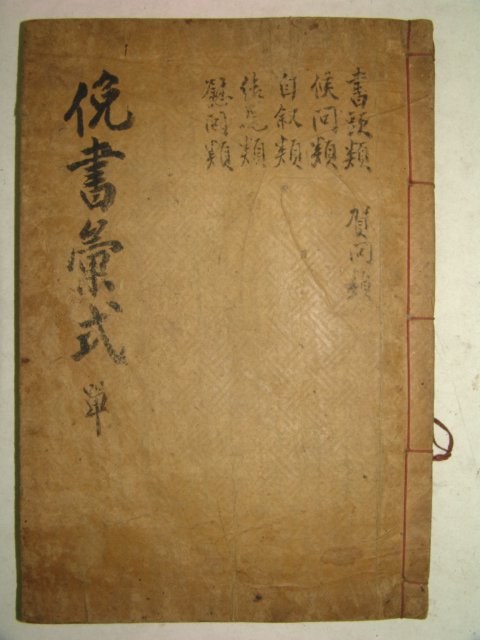 書頭類
賀問類
候問類
自叙類
結尾類
慰問類
俛書彙式
單